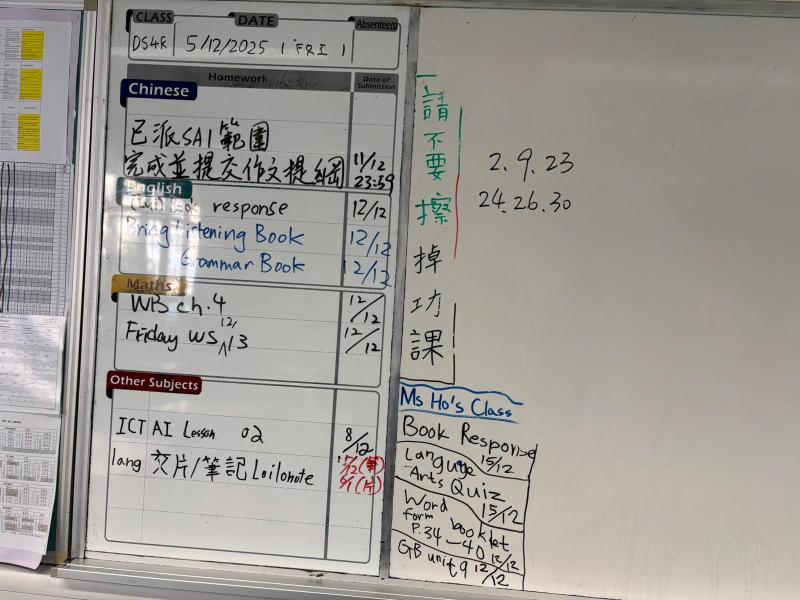 CLASS DATE Absentees
DS4R 5/12/2025 ( FRI )
Homework Date of Submission
Chinese
已派SAI 範圍
完成並提交作文提綱 11/12 23:59
English
response 12/12
Bring Listening Book 12/12
Grammar Book 12/12
Maths
WB ch.4 12/12
Friday WS 12, 13 12/12
Other Subjects
ICT AI Lesson 02 8/12
lang 交片/筆記 Loilonote
請不要擦掉功課
2. 9. 23
24. 26. 30
Ms Ho's Class
Book Response
15/12
Language Arts Quiz
15/12
Word form booklet
P.34-40 12/12
GB unit 9 12/12